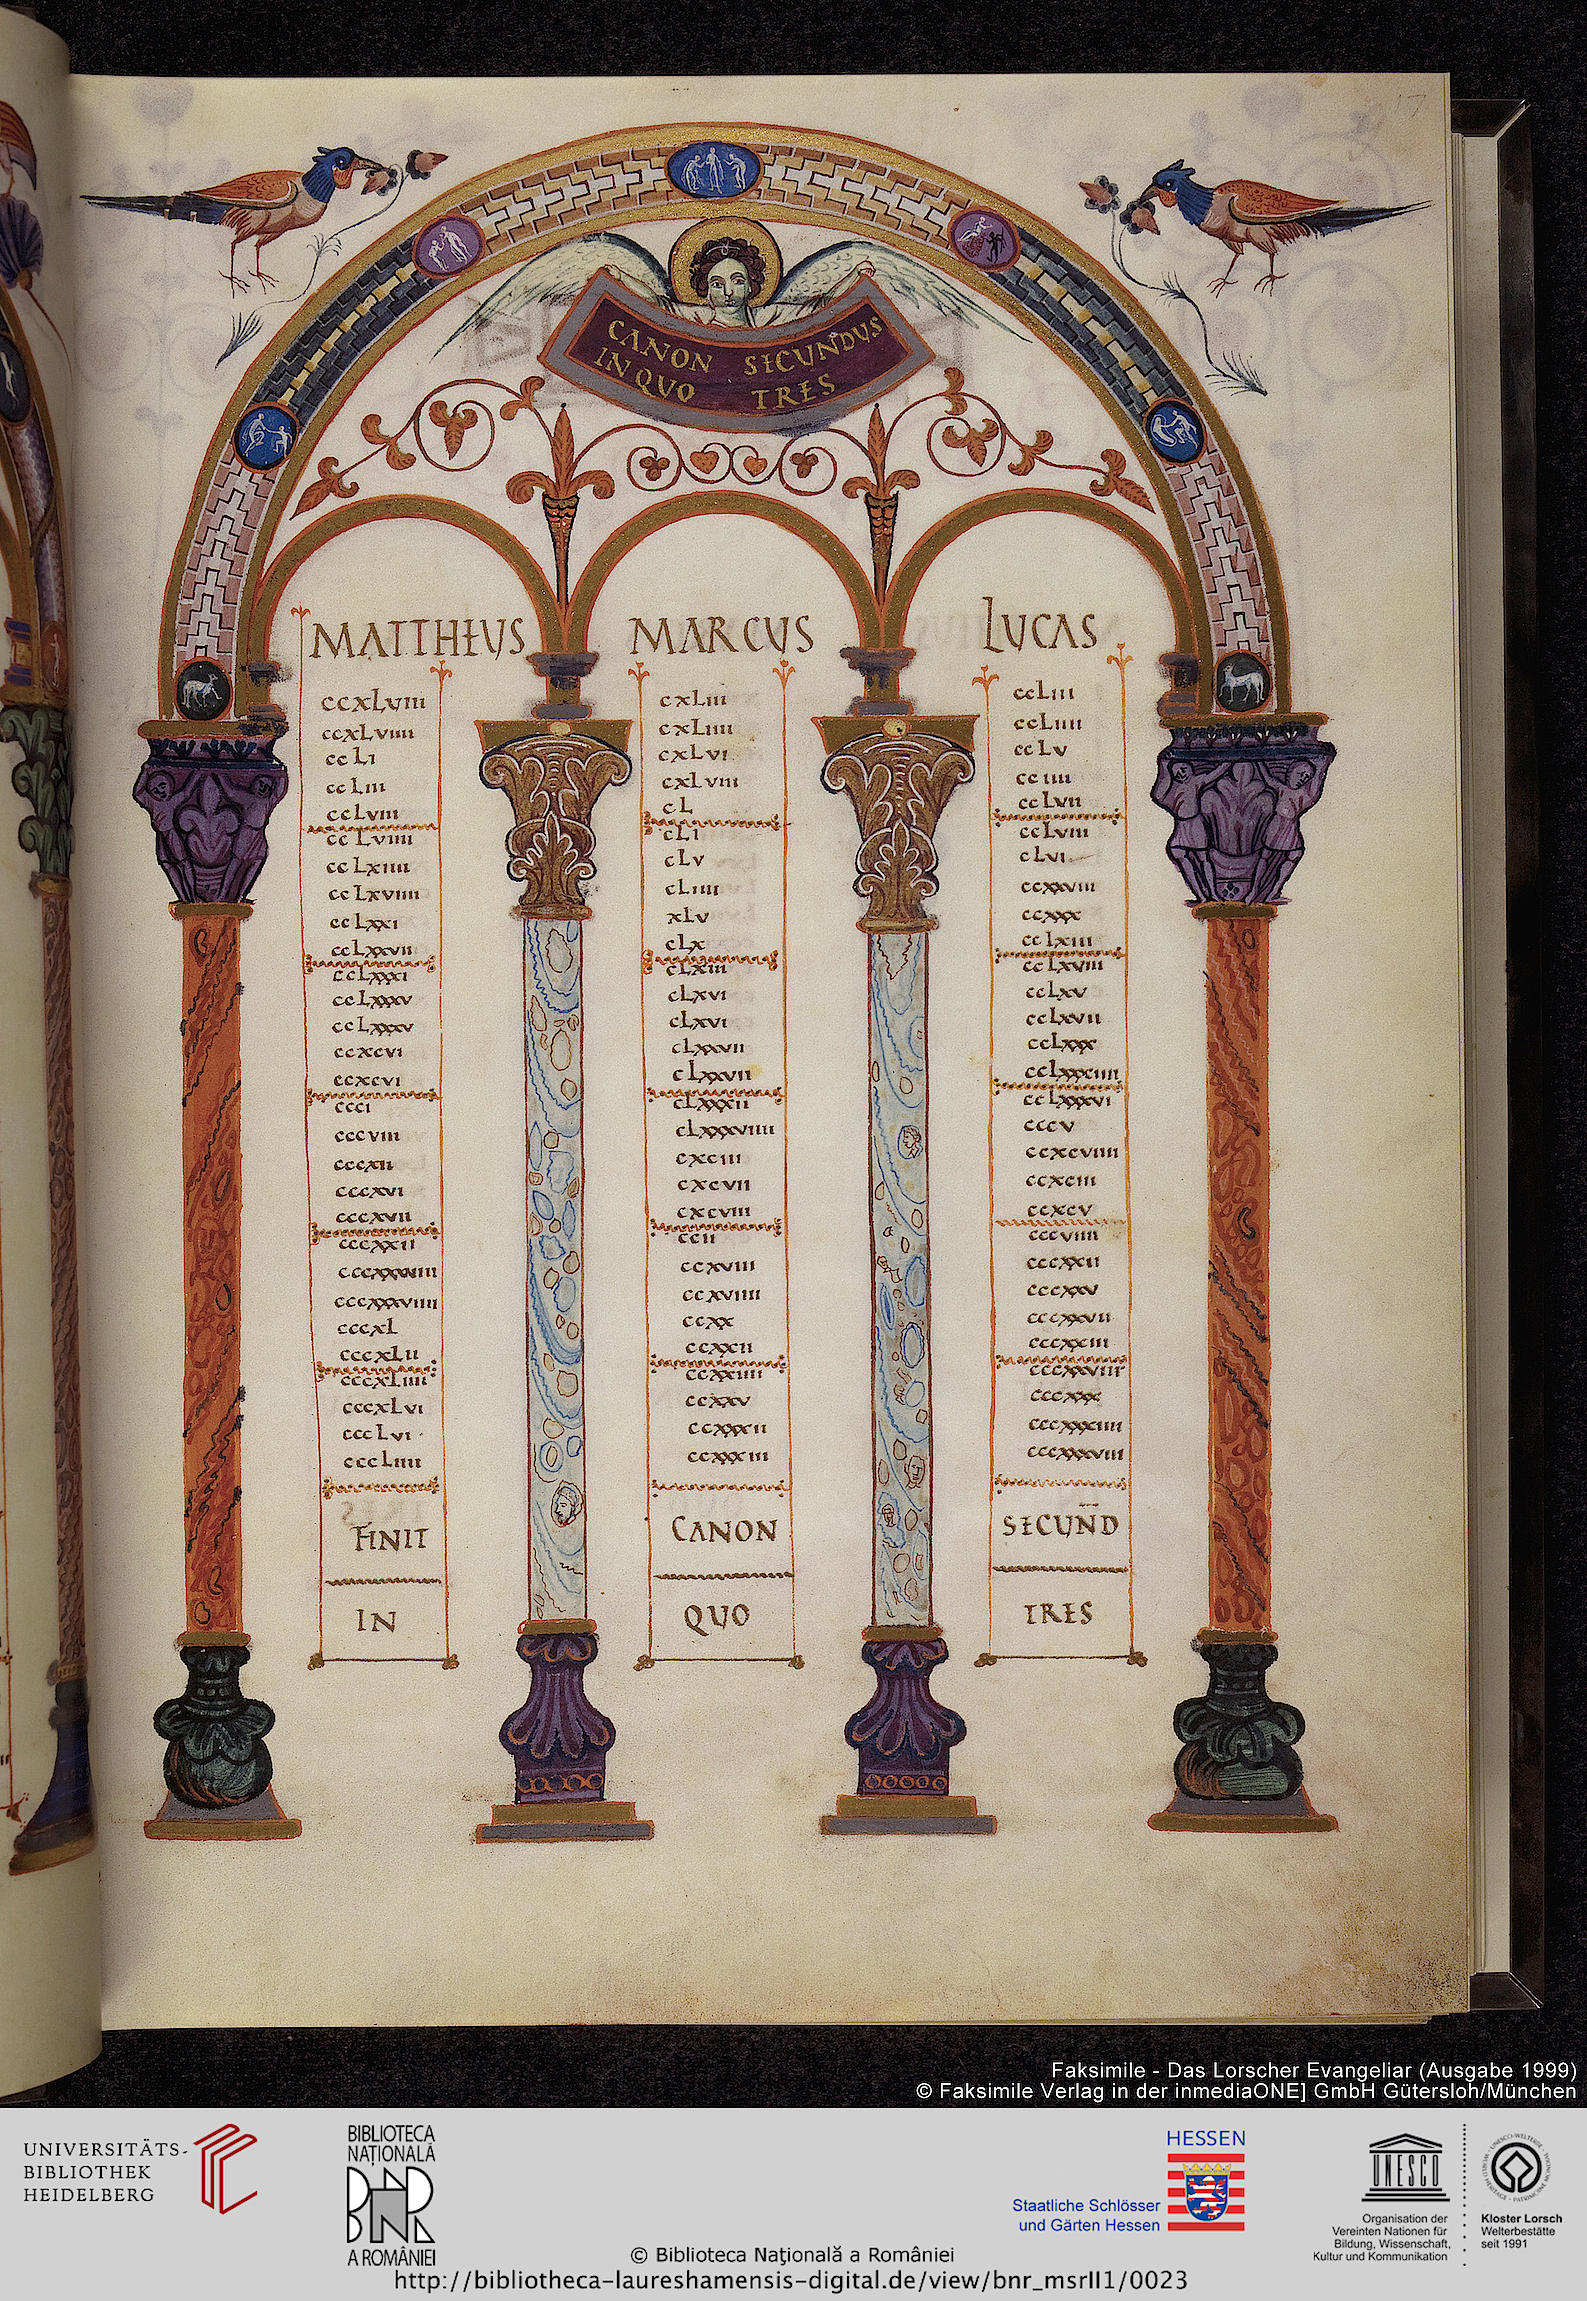 CANON SECUNDUS
IN QUO TRES
MATTHEUS MARCUS LUCAS
ccxLviii cxLiii ccLiii
ccxLviiii cxLiiii ccLiiii
ccLi cxLvi ccLv
ccLiii cxLviii cciiii
ccLviii cL ccLvii
ccLviiii cLi ccLviii
ccLxiiii cLv cLvi
ccLxviiii cLiiii ccxxviii
ccLxxi xLv ccxxx
ccLxxvii cLx ccLxiii
ccLxxxi cLxiii ccLxviii
ccLxxxv cLxvi ccLxv
ccLxxxv cLxvi ccLxvii
ccxcvi cLxxvii ccLxxx
ccxcvi cLxxvii ccLxxxiiii
ccci cLxxxii ccLxxxvi
cccviii cLxxxviiii cccv
cccxii cxciii ccxcviiii
cccxvi cxcvii ccxciii
cccxvii cxcviii ccxcv
cccxxii ccii cccviiii
ccxviii cccxxii
cccxxxviiii ccxviiii cccxxv
cccxL ccxx cccxxvii
cccxLii ccxxii cccxxiii
cccxLiiii ccxxiiii
cccxLvi ccxxv cccxxx
cccLvi ccxxxii cccxxxiiii
cccLiiii ccxxxiii cccxxxviii
FINIT CANON SECUND
IN QUO TRES
Faksimile - Das Lorscher Evangeliar (Ausgabe 1999)
© Faksimile Verlag in der inmediaONE] GmbH Gütersloh/München
UNIVERSITÄTS-
BIBLIOTHEK
HEIDELBERG
BIBLIOTECA
NAȚIONALĂ
BNR
A ROMÂNIEI
© Biblioteca Naţională a României
http://bibliotheca-laureshamensis-digital.de/view/bnr_msrII1/0023
HESSEN
Staatliche Schlösser
und Gärten Hessen
UNESCO
Organisation der
Vereinten Nationen für
Bildung, Wissenschaft,
Kultur und Kommunikation
Kloster Lorsch
Welterbestätte
seit 1991